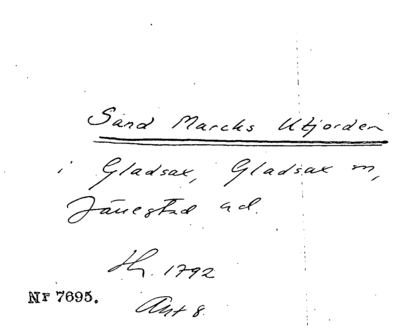 Sand Marcks Utjorden
i Gladsax, Gladsax m,
Järrestad ad.
Hr. 1792
Ant 8.
Nr 7695.